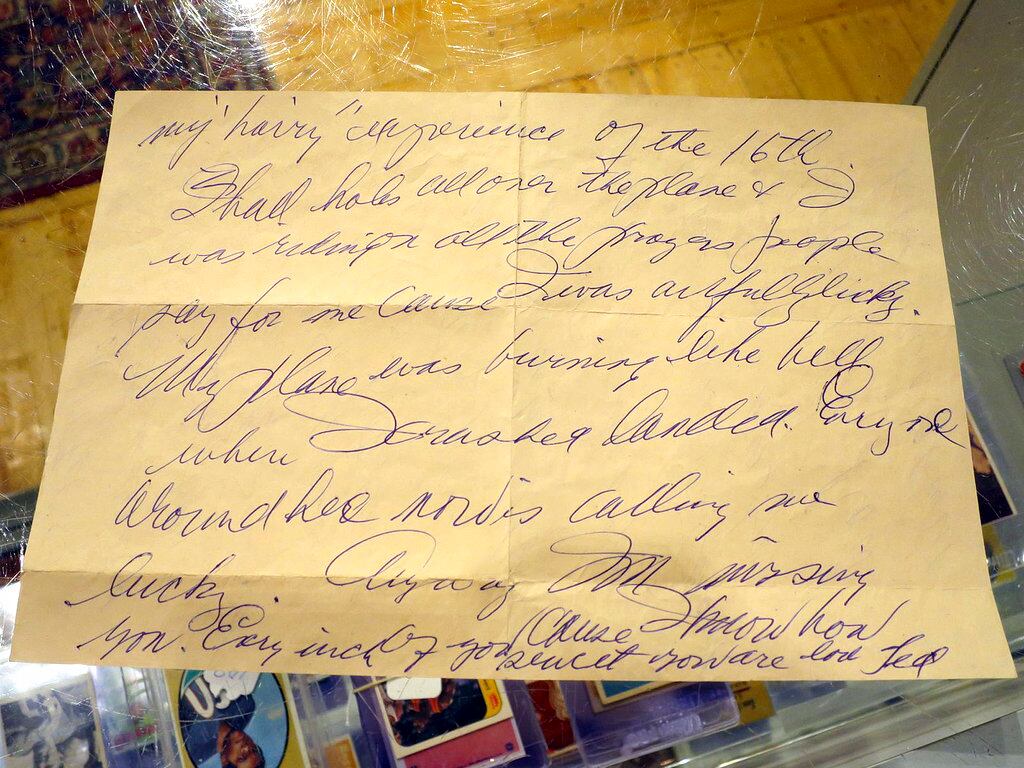 my "hairy" experience of the 16th.
I had holes all over the plane & I
was riding on all the prayers people
say for me cause I was awful lucky.
My plane was burning like hell
when I crashed landed. Everyone
around here now is calling me
lucky. Anyway I'm missing
you. Every inch of you cause I know how
sweet you are love Ted